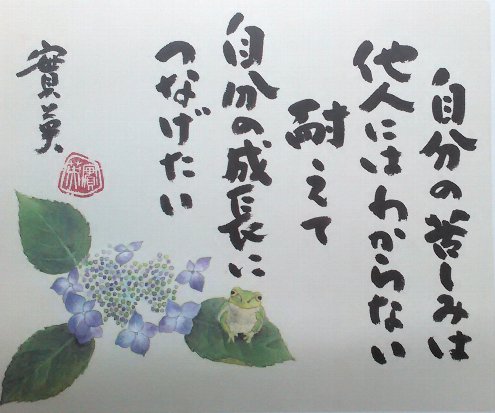 自分の苦しみは
他人にはわからない
耐えて
自分の成長に
つなげたい
實英